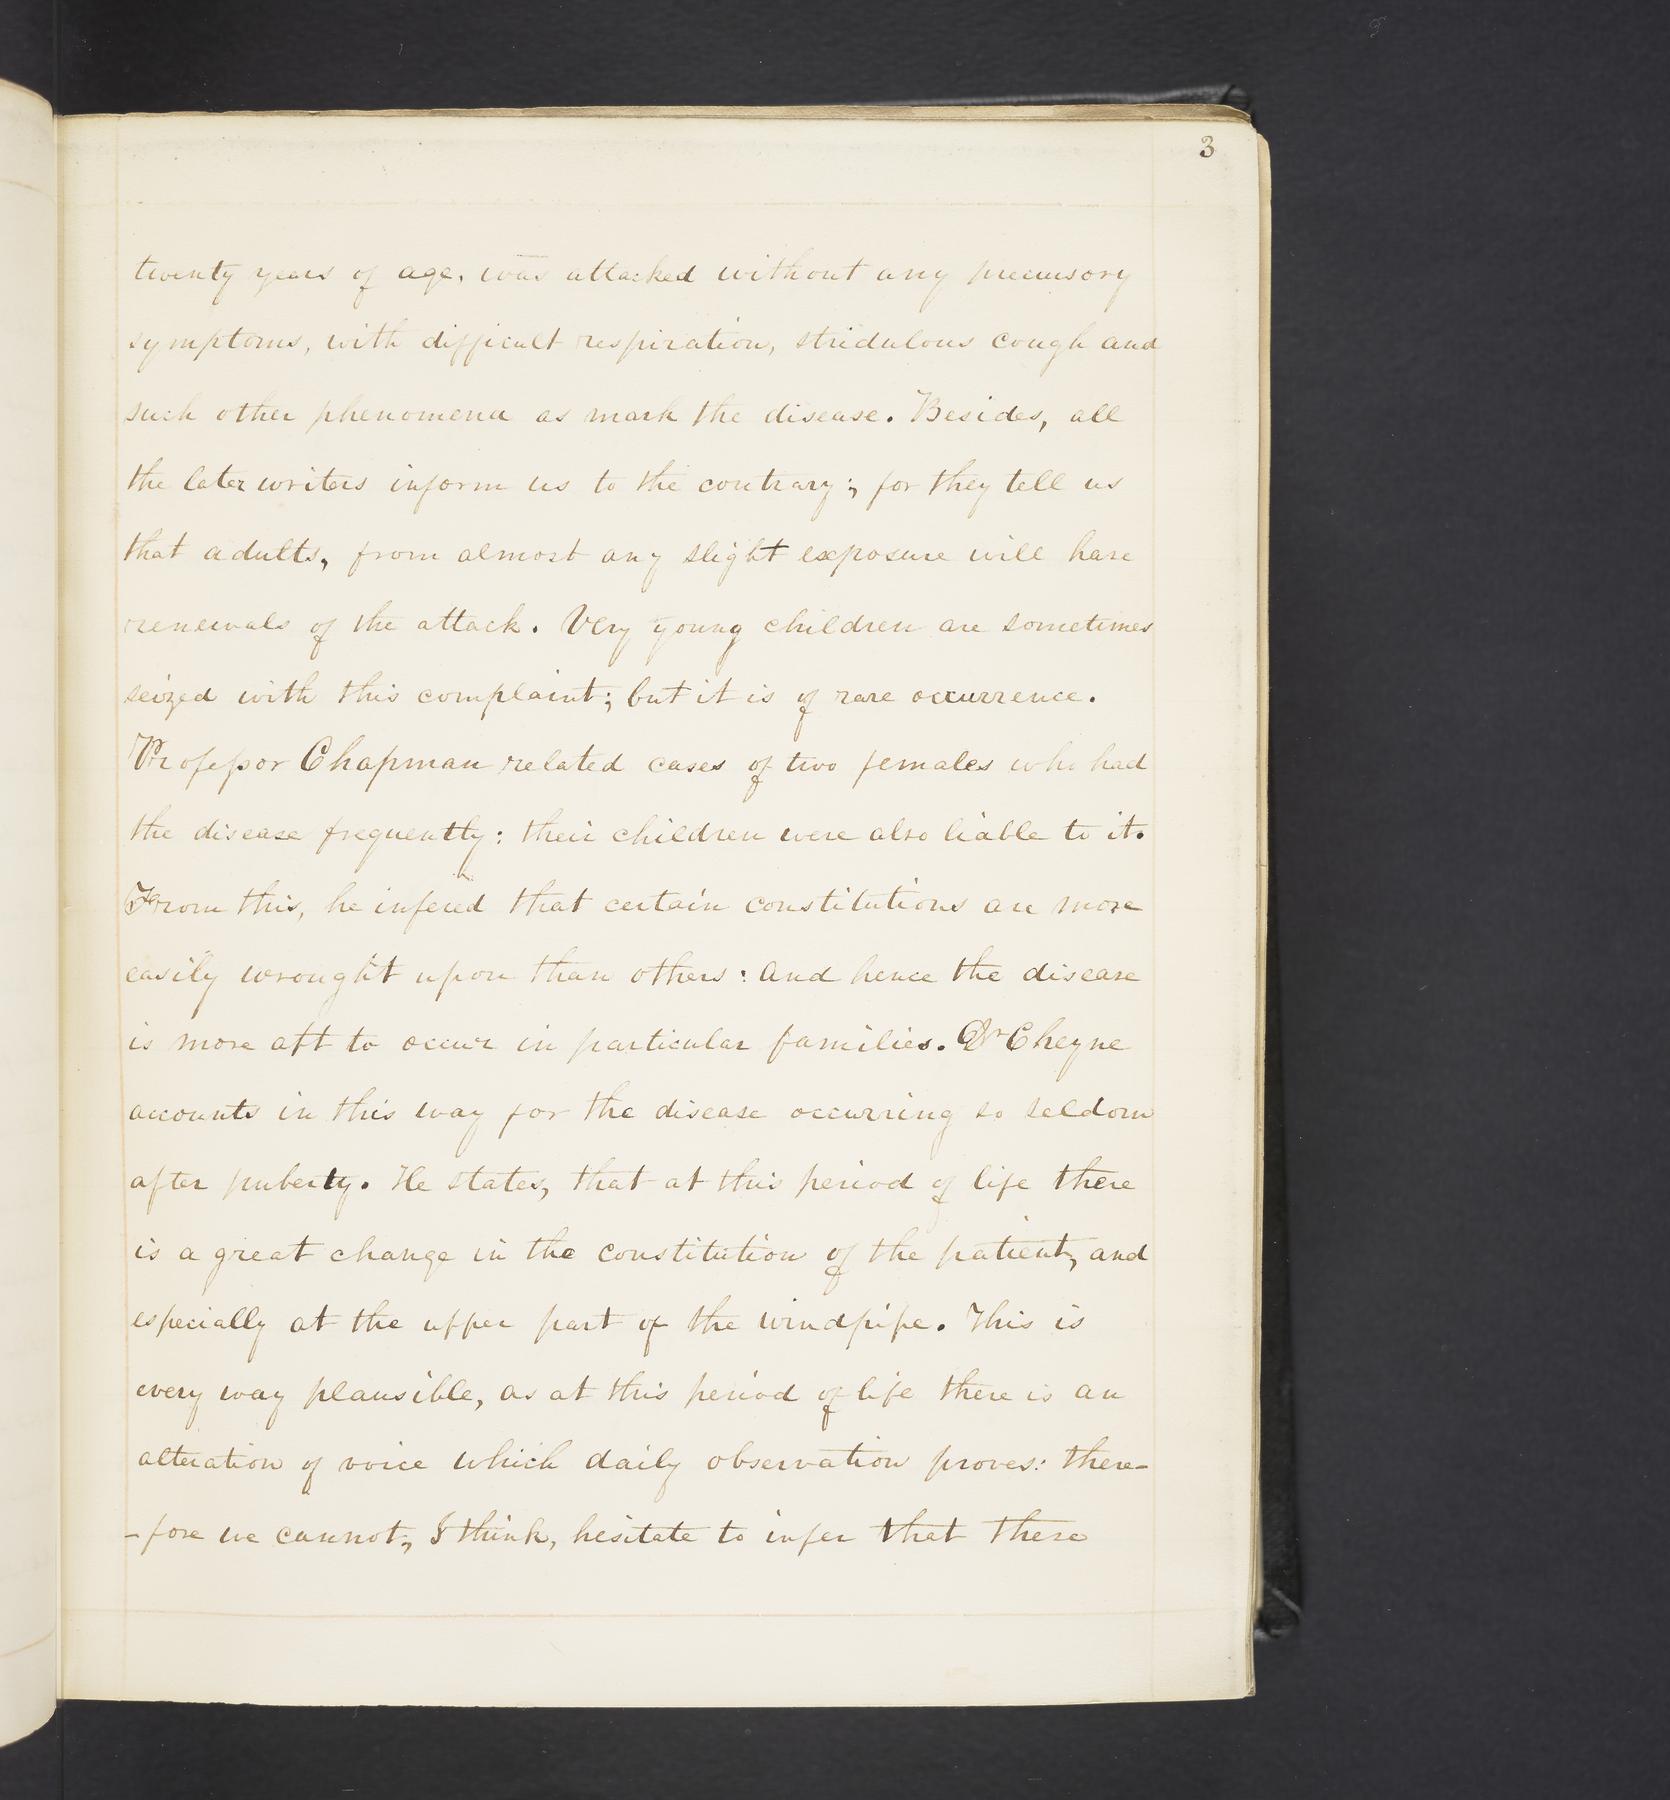 3
twenty years of age, was attacked without any precursory
symptoms, with difficult respiration, stridulous cough and
such other phenomena as mark the disease. Besides, all
the later writers inform us to the contrary; for they tell us
that adults, from almost any slight exposure will have
renewals of the attack. Very young children are sometimes
seized with this complaint; but it is of rare occurrence.
Professor Chapman related cases of two females who had
the disease frequently: their children were also liable to it.
From this, he infered that certain constitutions are more
easily wrought upon than others: and hence the disease
is more apt to occur in particular families. Dr Cheyne
accounts in this way for the disease occurring so seldom
after puberty. He states, that at this period of life there
is a great change in the constitution of the patient, and
especially at the upper part of the windpipe. This is
every way plausible, as at this period of life there is an
alteration of voice which daily observation proves: there-
-fore we cannot, I think, hesitate to infer that there